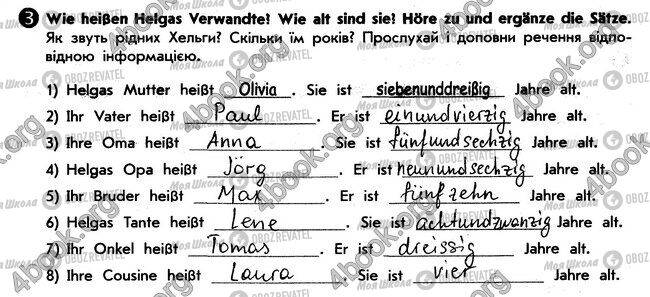 3 Wie heißen Helgas Verwandte? Wie alt sind sie? Höre zu und ergänze die Sätze.
Як звуть рідних Хельги? Скільки їм років? Прослухай і доповни речення відпо-
відною інформацією.
1) Helgas Mutter heißt Olivia. Sie ist siebenunddreißig Jahre alt.
2) Ihr Vater heißt Paul. Er ist einundvierzig Jahre alt.
3) Ihre Oma heißt Anna. Sie ist fünfundsechzig Jahre alt.
4) Helgas Opa heißt Jörg. Er ist neunundsechzig Jahre alt.
5) Ihr Bruder heißt Max. Er ist fünfzehn Jahre alt.
6) Helgas Tante heißt Lene. Sie ist achtundzwanzig Jahre alt.
7) Ihr Onkel heißt Tomas. Er ist dreissig Jahre alt.
8) Ihre Cousine heißt Laura. Sie ist vier Jahre alt.
4book.org
Моя Школа OBOZREVATEL